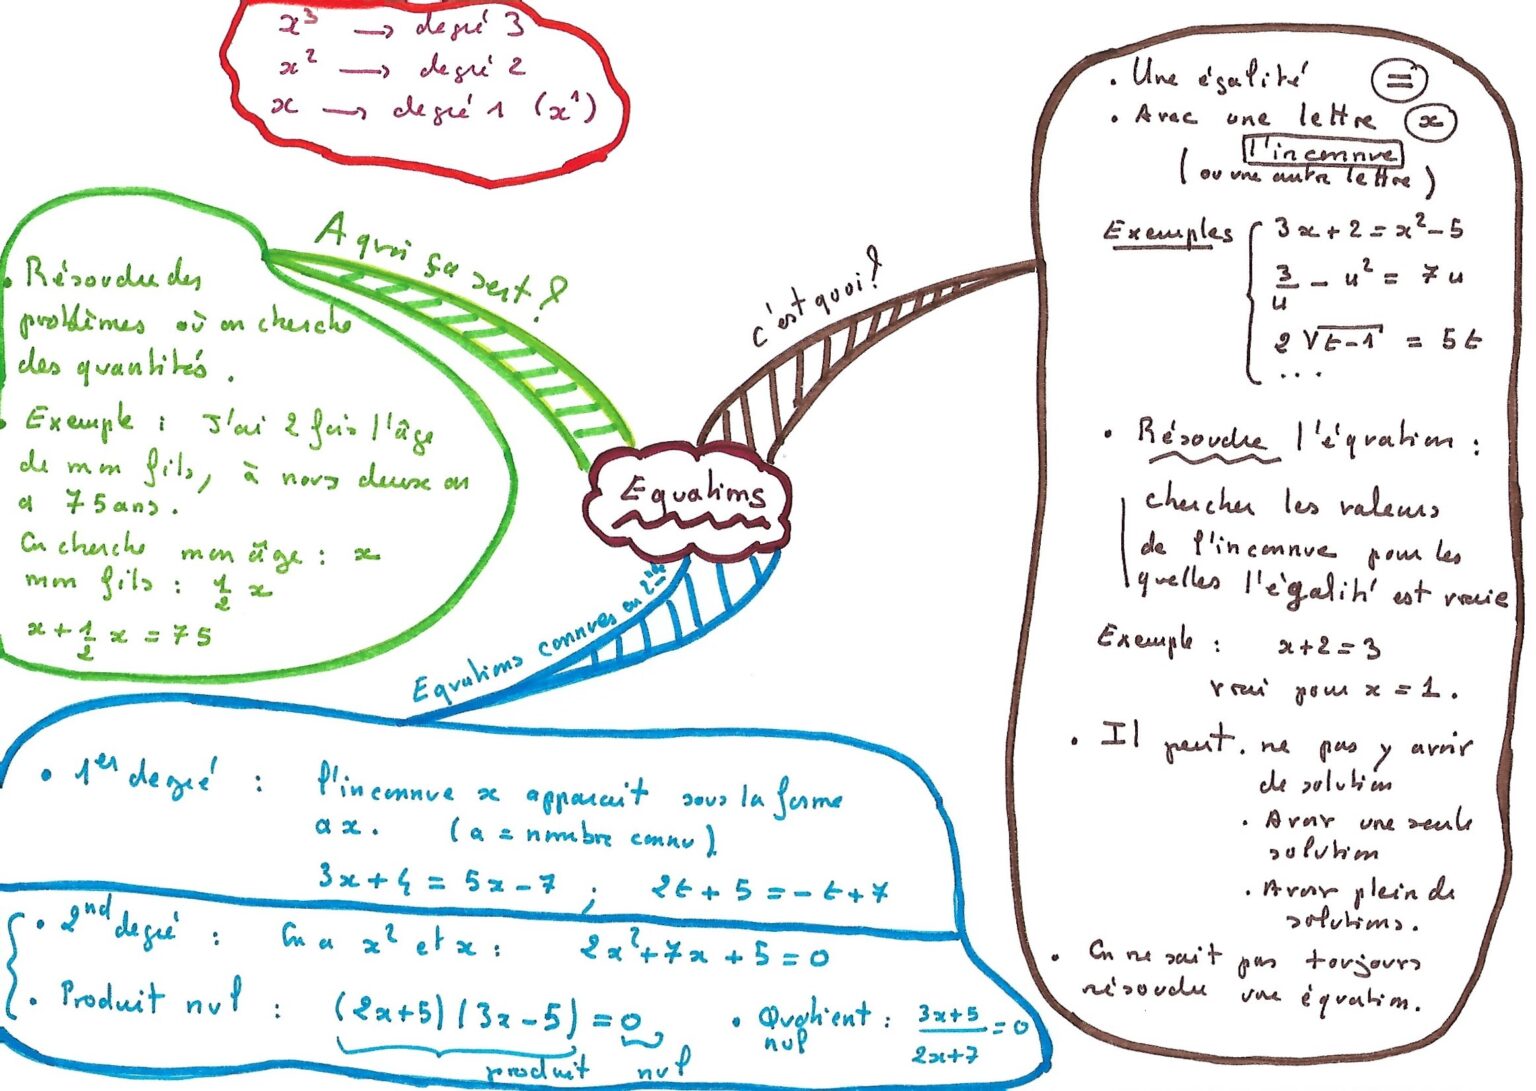 x³ → degré 3
x² → degré 2
x → degré 1 (x¹)
A quoi ça sert ?
• Résoudre des
problèmes où on cherche
des quantités.
• Exemple : J'ai 2 fois l'âge
de mon fils, à nous deux on
a 75 ans.
On cherche mon âge : x
mon fils : 1/2 x
x + 1/2 x = 75
c'est quoi ?
• Une égalité =
• Avec une lettre x
l'inconnue
(ou une autre lettre)
Exemples
3x + 2 = x² - 5
3/u - u² = 7u
2√(t-1) = 5t
...
• Résoudre l'équation :
chercher les valeurs
de l'inconnue pour les
quelles l'égalité est vraie
Exemple : x+2 = 3
vrai pour x = 1.
• Il peut • ne pas y avoir
de solution
• Avoir une seule
solution
• Avoir plein de
solutions.
• On ne sait pas toujours
résoudre une équation.
Equations
Equations connues en 2nde
• 1er degré : l'inconnue x apparait sous la forme
ax. (a = nombre connu).
3x+4 = 5x-7 ; 2t + 5 = -t+7
• 2nd degré : On a x² et x : 2x²+7x+5=0
• Produit nul : (2x+5)(3x-5) = 0
produit nul
• Quotient nul : (3x+5)/(2x+7) = 0